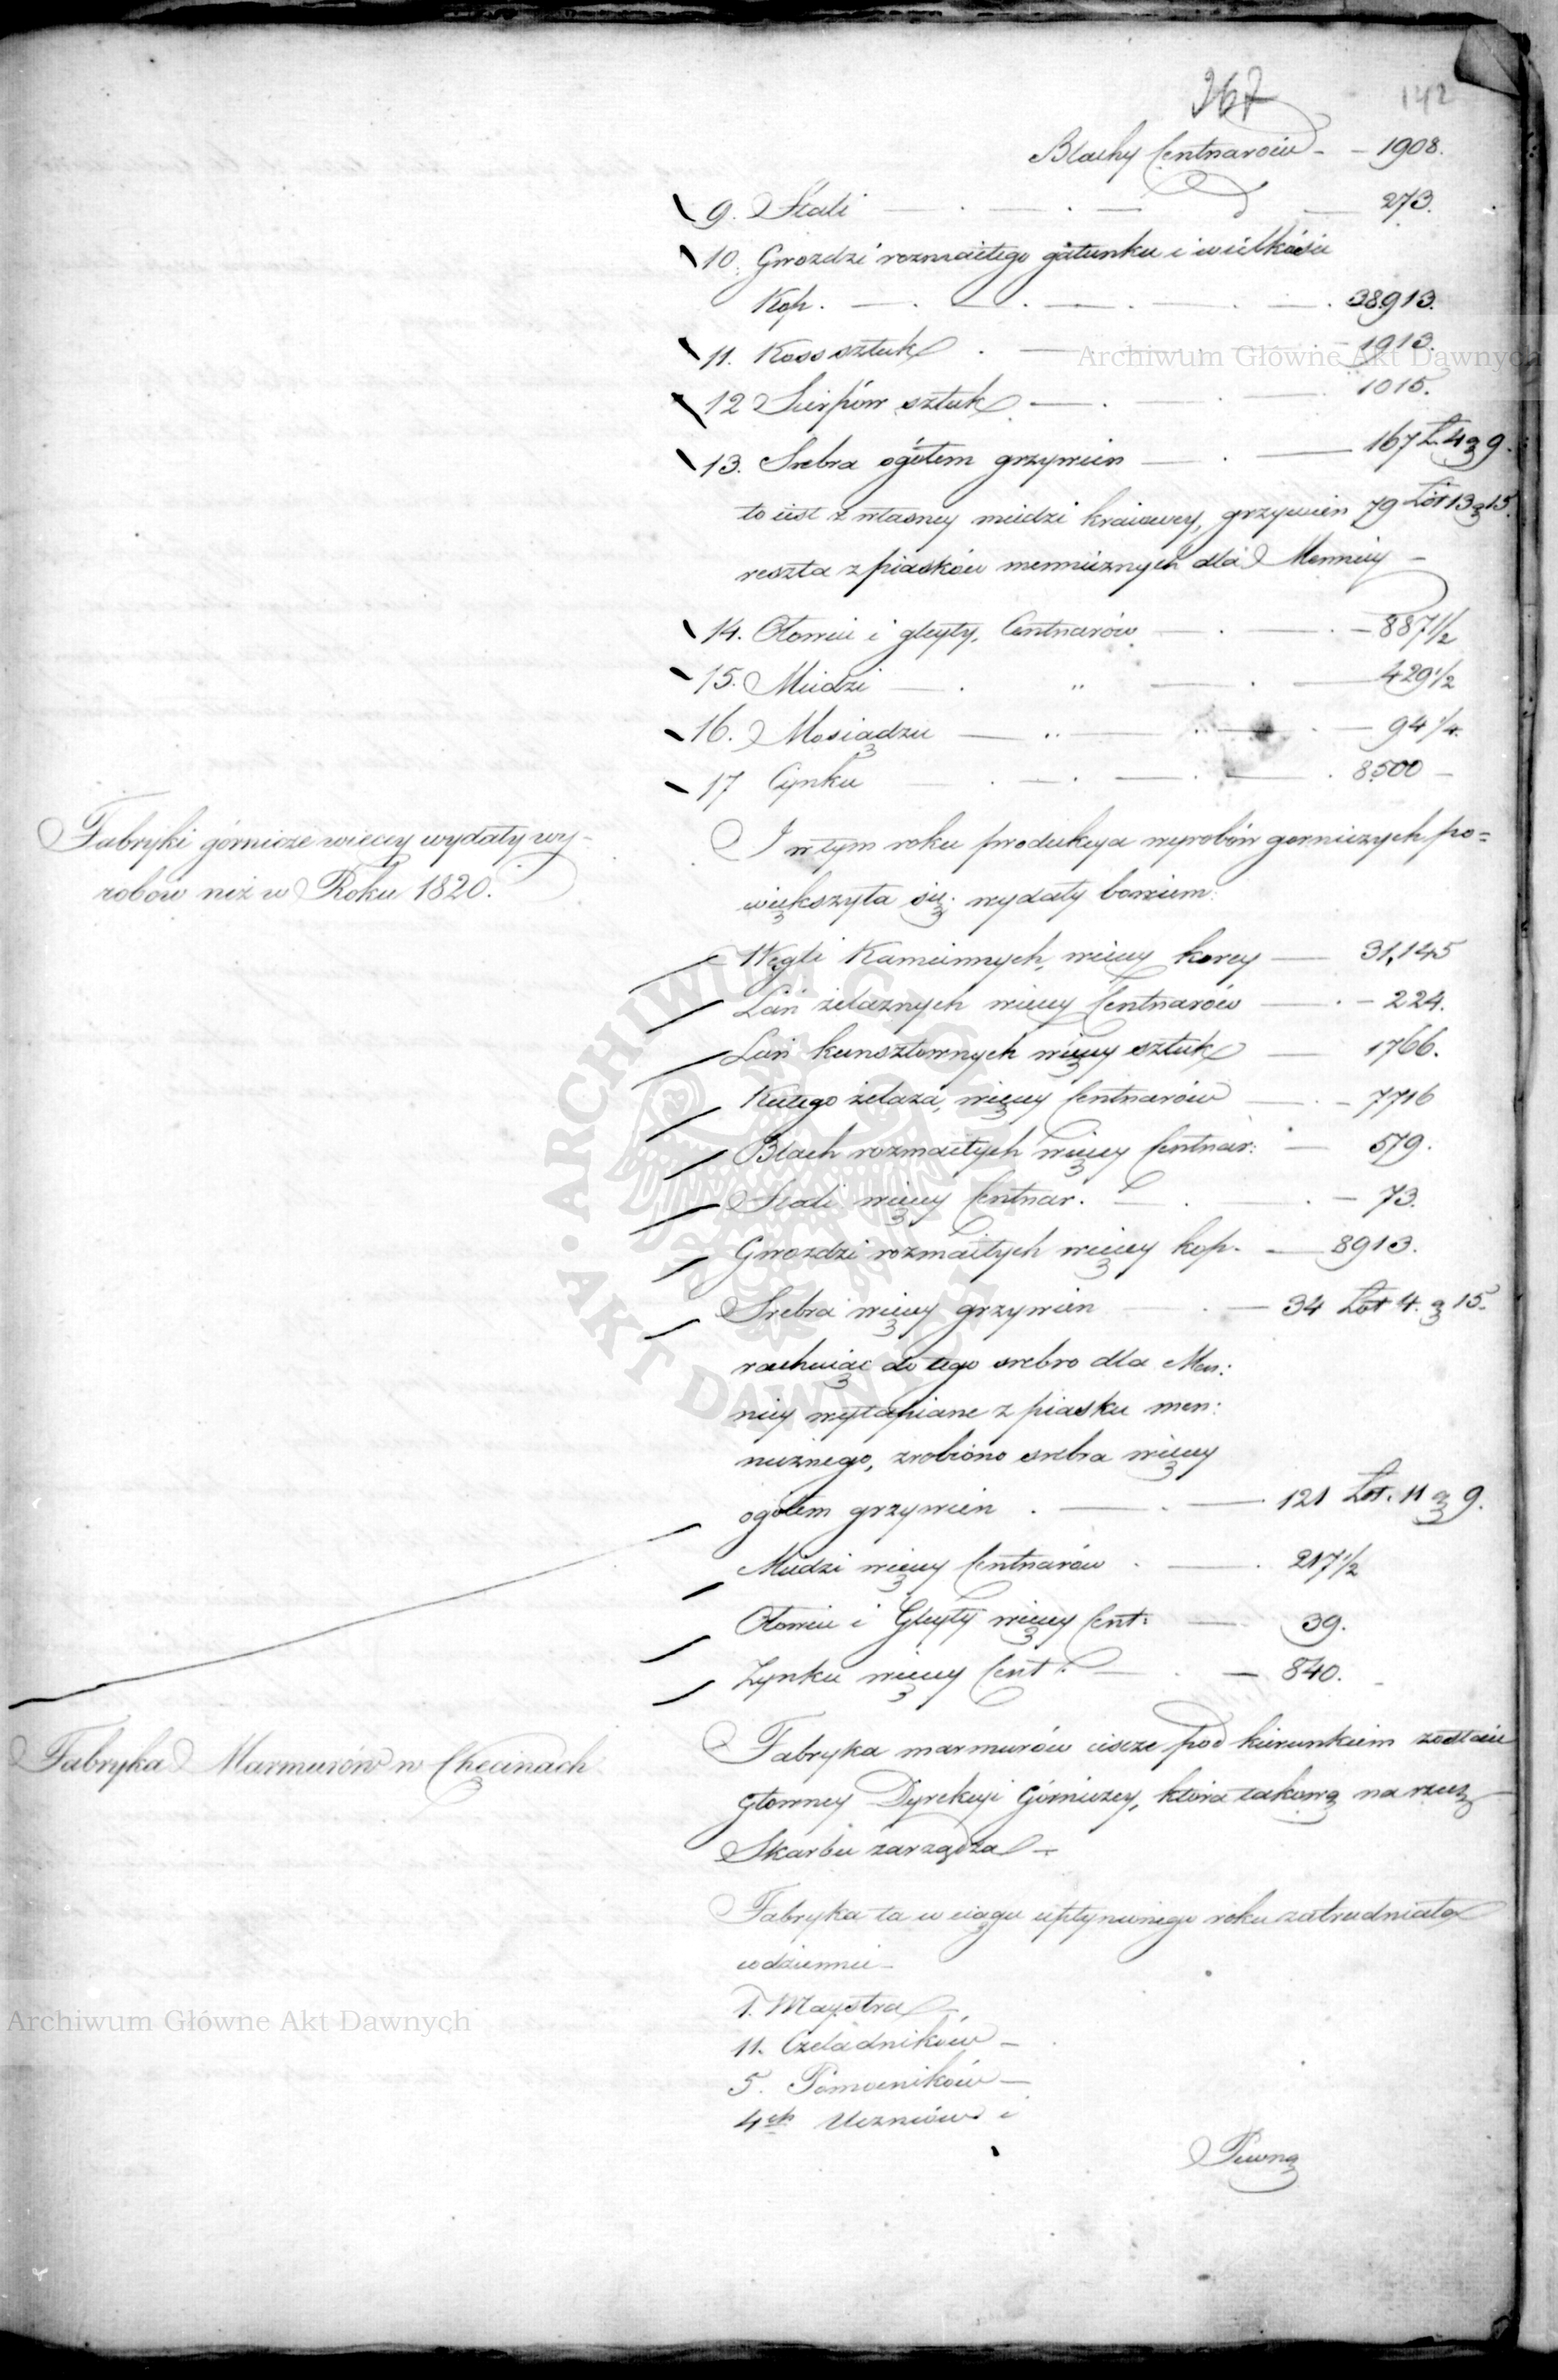 267
142
Blachy Centnarów - - 1908.
9. Stali — . — . — 273.
10. Gwozdzi rozmaitego gatunku i wielkości
Kop. — . — . — . — . 38913.
11. Koss sztuk . — 1913.
Archiwum Główne Akt Dawnych
12 Sierpów sztuk — . — 1015.
13. Srebra ogółem grzywien — . — 167 Ł. 4 g 9.
to iest z własney miedzi kraiowey, grzywien 79 Łót 13 g 15.
reszta z piasków mennicznych dla Mennicy —
14. Ołowiu i gleyty, Centnarów — . — . — 887 1/2
15. Miedzi — . " — . — 429 1/2
16. Mosiądzu — .. — .. — . — 94 1/4.
17 Cynku — . — . — . — . 8500 —
Fabryki górnicze więcey wydały wy-
robów niż w Roku 1820.
I w tym roku produkcya wyrobów gorniczych po=
większyła się; wydały bowiem:
Węgli Kamiennych, więcey korcy — 31,145
Lań żelaznych więcey Centnarów — . — 224.
Lań kunsztownych więcey sztuk — 1766.
Kutego żelaza, więcey Centnarów — . — 7716
Blach rozmaitych więcey Centnar: — 579.
Stali więcey Centnar. — . — 73.
Gwozdzi rozmaitych więcey kop. — 8913.
Srebra więcey grzywien — . — 34 Łot 4. g 15.
rachuiąc do tego srebro dla Men:
nicy wytapiane z piasku men:
nicznego, zrobiono srebra więcey
ogółem grzywien . — . — 121 Łot. 11 g 9.
Miedzi więcey Centnarów . — . 217 1/2
Ołowiu i Gleyty więcey Cent: — 39.
Zynku więcey Cent: — . — 840.
Fabryka Marmurów w Chęcinach
Fabryka marmurów ieszcze pod kierunkiem zostaie
głowney Dyrekcyi Górniczey, która takową na rzecz
Skarbu zarządza —
Fabryka ta w ciągu upłynionego roku zatrudniała
codziennie —
1. Maystra —
11. Czeladników —
5. Pomocników —
4ch Uczniów i
Pewną
Archiwum Główne Akt Dawnych
ARCHIWUM GŁÓWNE · AKT DAWNYCH